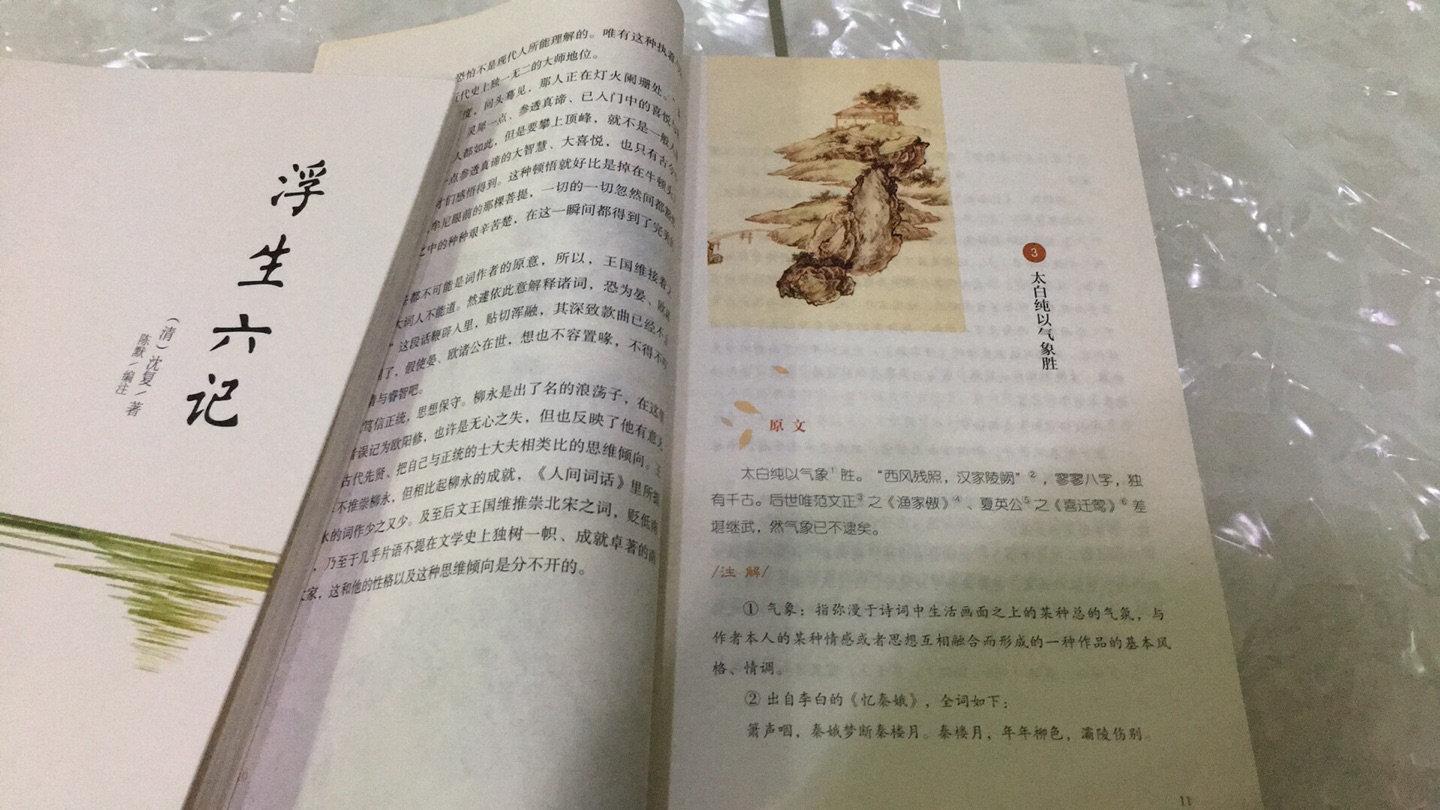 浮生六记
（清）沈复/著
陈默/编注
恐怕不是现代人所能理解的。唯有这种执着
代史上独一无二的大师地位。
度，回头蓦见，那人正在灯火阑珊处。
灵犀一点、参透真谛、已入门中的喜悦
人都如此，但是要攀上顶峰，就不是一般人
点参透真谛的大智慧、大喜悦，也只有古今
们感悟得到。这种顿悟就好比是掉在牛顿头
牟尼眼前的那棵菩提，一切的一切忽然间都
之中的种种艰辛苦楚，在这一瞬间都得到了完
都不可能是词作者的原意，所以，王国维接着
大词人不能道。然遽依此意解释诸词，恐为晏、欧
这段话鞭辟入里，贴切浑融，其深致款曲已经不
了，假使晏、欧诸公在世，想也不容置喙，不得不
与睿智吧。
笃信正统，思想保守。柳永是出了名的浪荡子，在这
误记为欧阳修，也许是无心之失，但也反映了他有意
古代先贤、把自己与正统的士大夫相类比的思维倾向。
不推崇柳永，但相比起柳永的成就，《人间词话》里所
永的词作少之又少。及至后文王国维推崇北宋之词，贬低南
，乃至于几乎片语不提在文学史上独树一帜、成就卓著的
家，这和他的性格以及这种思维倾向是分不开的。
3
太白纯以气象胜
原文
太白纯以气象①胜。“西风残照，汉家陵阙”②，寥寥八字，独
有千古。后世唯范文正③之《渔家傲》④、夏英公⑤之《喜迁莺》⑥差
堪继武，然气象已不逮矣。
/注 解/
① 气象：指弥漫于诗词中生活画面之上的某种总的气氛，与
作者本人的某种情感或者思想互相融合而形成的一种作品的基本风
格、情调。
② 出自李白的《忆秦娥》，全词如下：
箫声咽，秦娥梦断秦楼月。秦楼月，年年柳色，灞陵伤别。
11